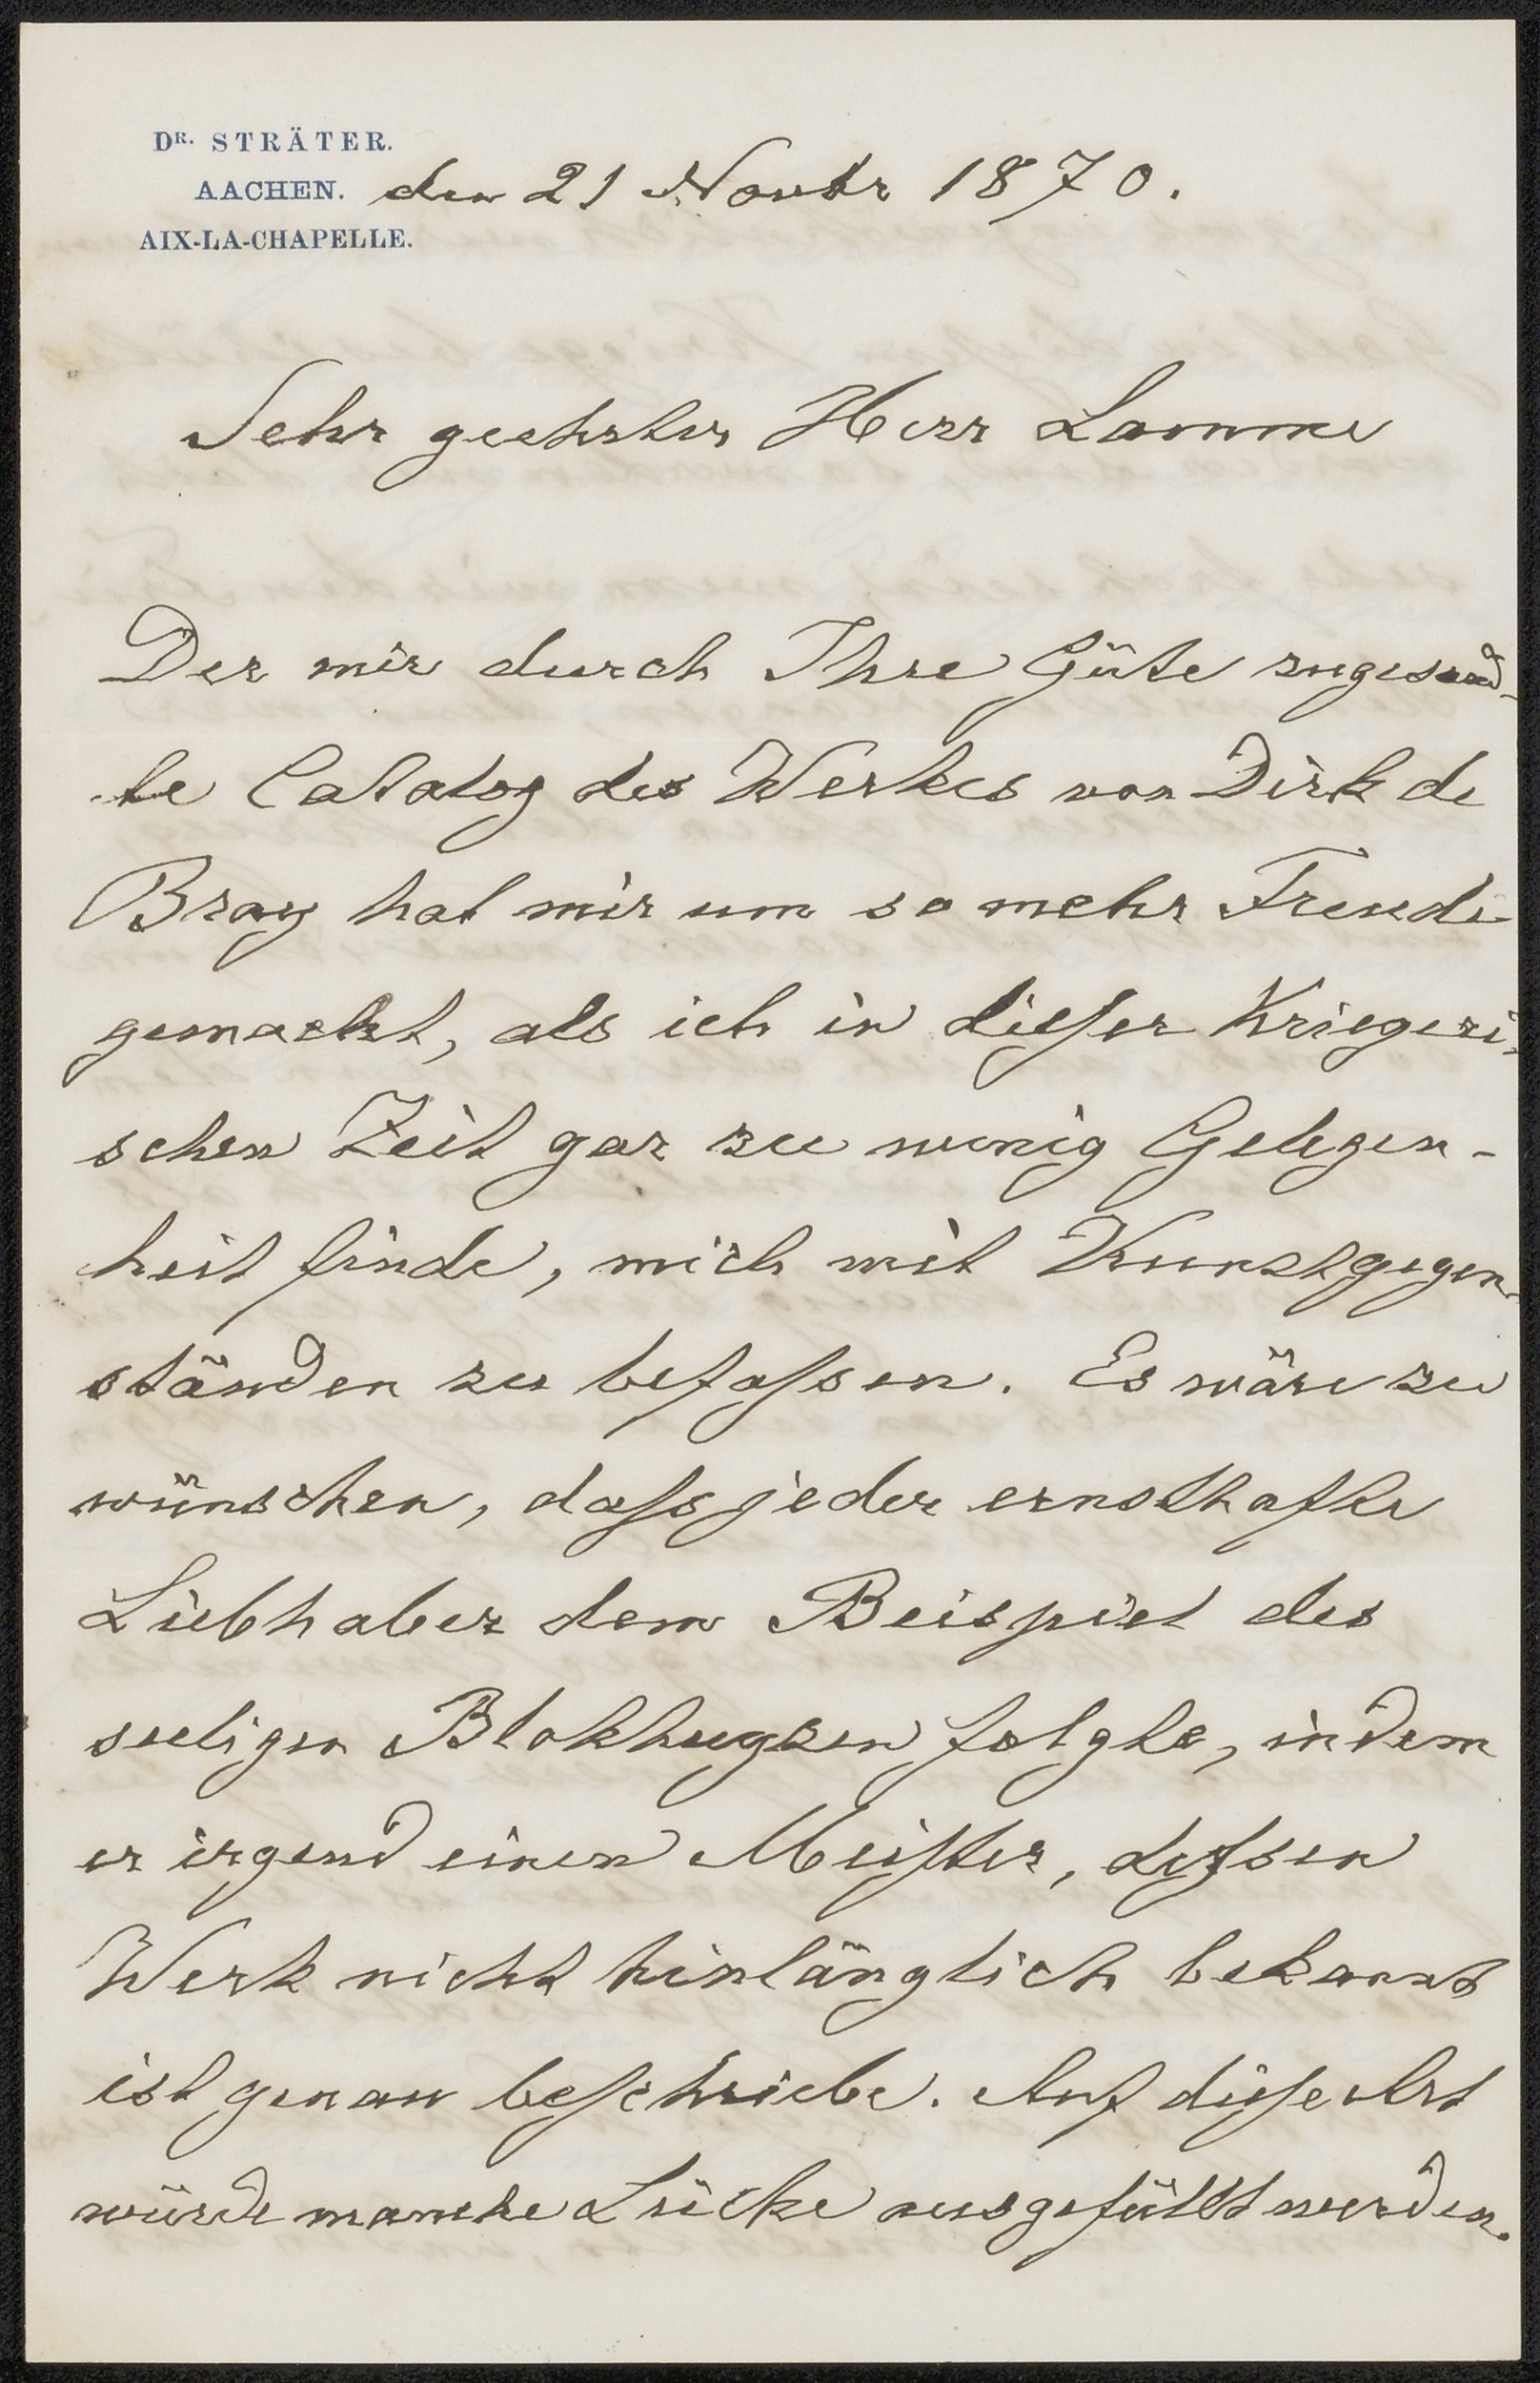 DR. STRÄTER.
AACHEN. den 21 Novbr 1870.
AIX-LA-CHAPELLE.
Sehr geehrter Herr Lamme
Der mir durch Ihre Güte zugesand-
te Catalog des Werkes von Dirk de
Bray hat mir um so mehr Freude
gemacht, als ich in dieser Kriegeri-
schen Zeit gar zu wenig Gelegen-
heit finde, mich mit Kunstgegen-
ständen zu befassen. Es wäre zu
wünschen, dass jeder ernsthafte
Liebhaber dem Beispiel des
seeligen Blokhuyzen folgte, indem
er irgend einen Meister, dessen
Werk nicht hinlänglich bekannt
ist genau beschriebe. Auf diese Art
würde manche Lücke ausgefüllt werden.